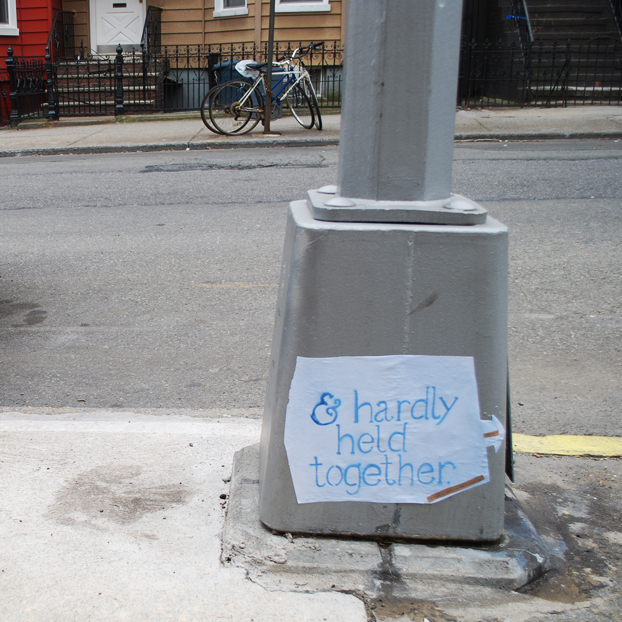 & hardly
held
together.